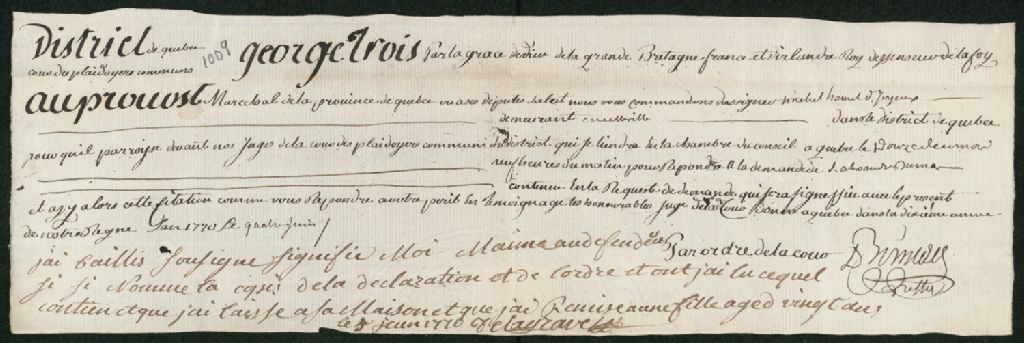 District de quebec 1009 george trois Par la grace de dieu de la grande Bretagne france et Irlande Roy deffenseur de la foy
cour des plaidoyers communs
au prouost Marechal de la province de quebec ou a ses deputes salut nous vous commandons dassigner michel hamel dt
demeurant dans le district de quebec
pour quil parroisse devant nos Juges de la cour des plaidoyers communs du district qui se tiendra Ha la chambre du conseil a quebec le Douze de
neuf heures du matin pour Repondre a la demande de
contenu En la Requete de demande qui sera signiffié avec le present
et ayy alors cette sitation comme vous Repondre a votre peril En Temoignage les honnorables Juge de la Cour Donné a quebec dans la dixieme annee
de notre Regne Jan 1770 Le quatre juin /
Par ordre de la cour
jai Baillis Sousigné Signifié Moi Maime au defendeur
si si Nommé la copis de la declaration et de lordre et ont jai lu cequel
contien et que jai laissé a sa Maison et que jai Remise a une fille aged vingt ans
le 8 juin 1770